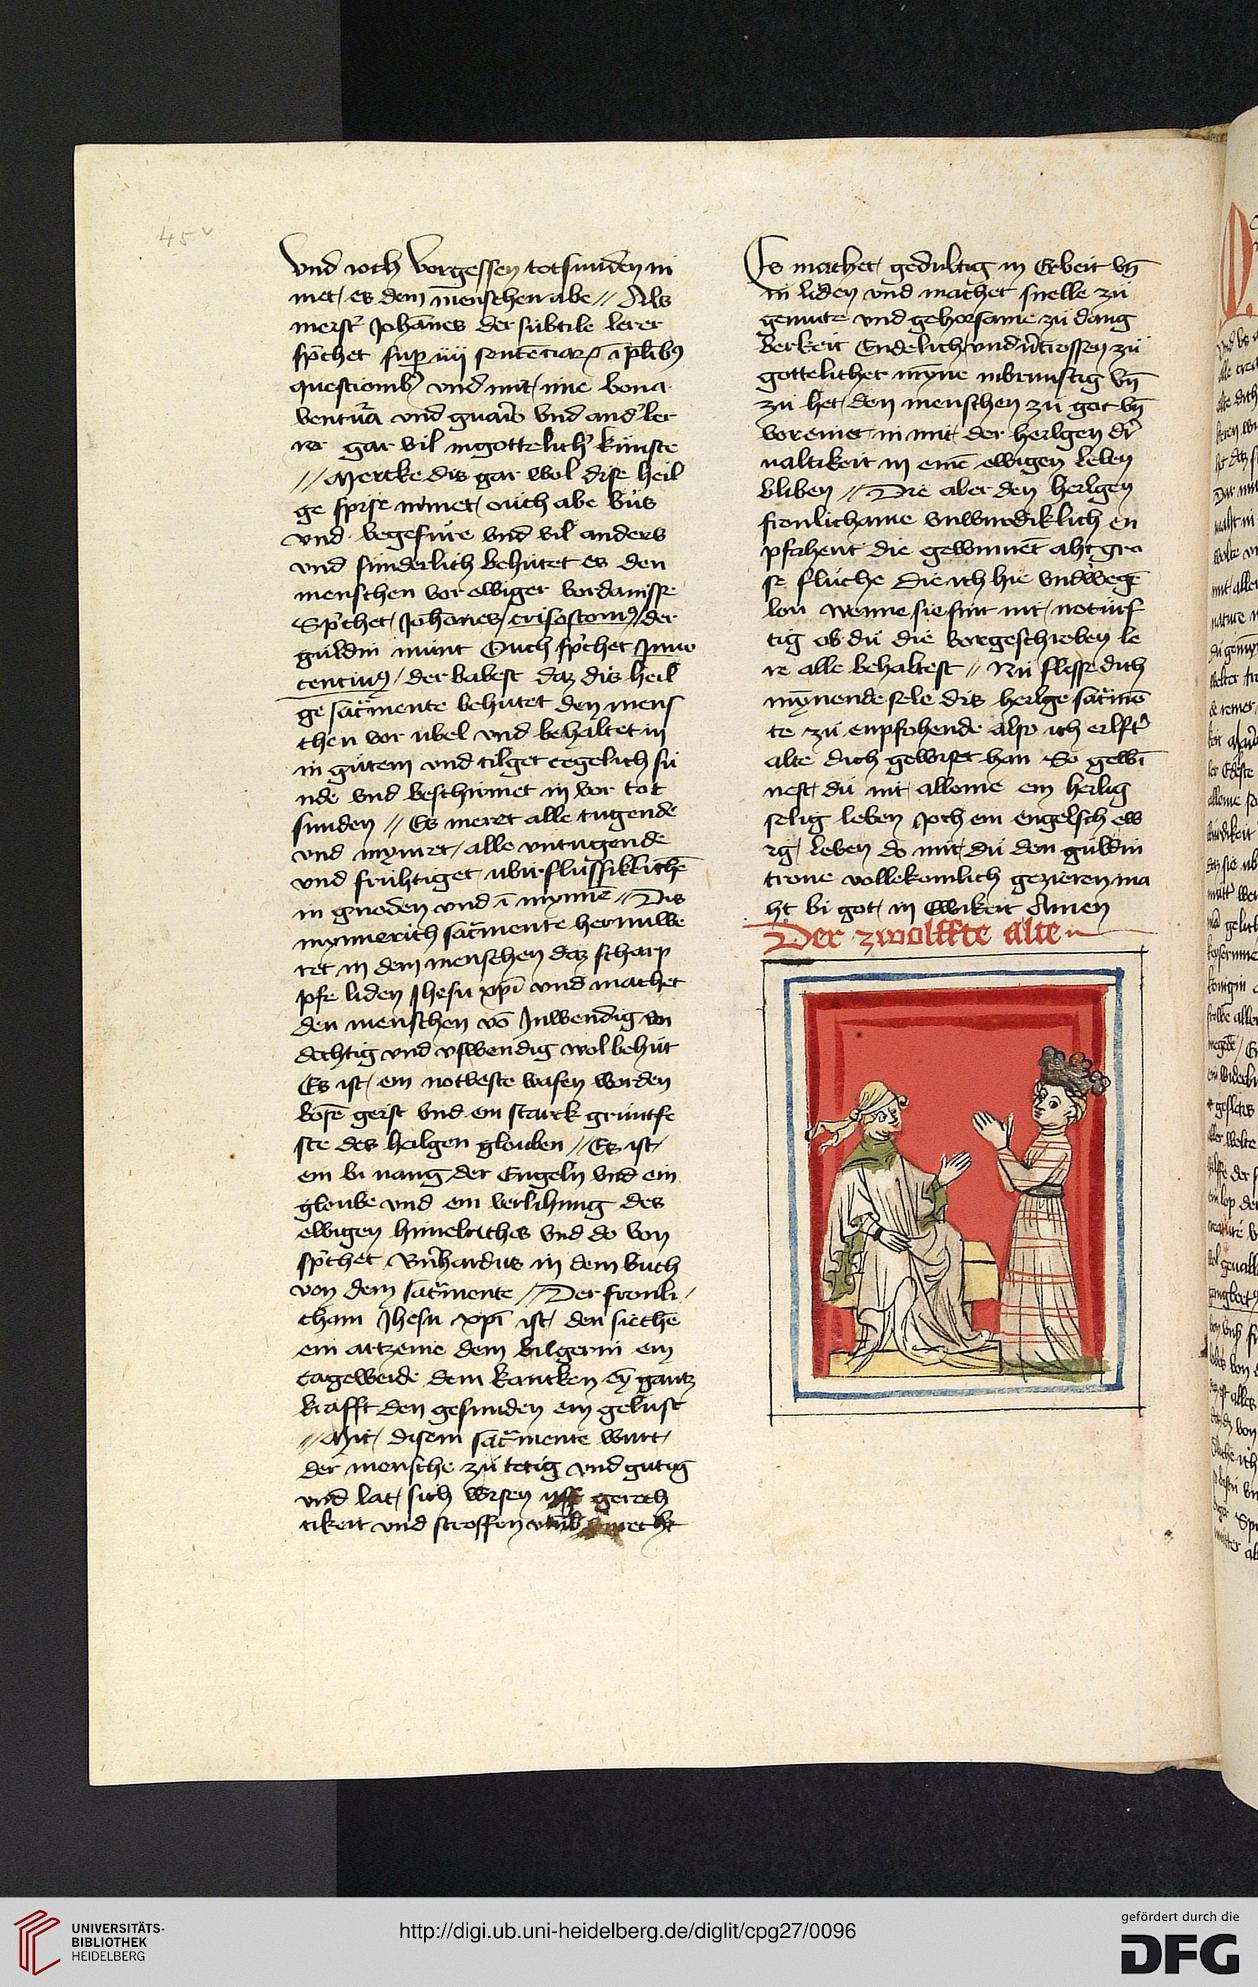 45v
vnd ioch vorgessen totsunden ni
met es dem mēnschen abe // Als
meist̕ Johānes der subtile lerer
sp̄chet sup̱ iiij sentēciaꝝ ī plibꝰ
questionibꝰ vnd mit ime bona
ventūra vnd gnaūs vnd and̕ ler
rer gar vil in gottelich̕ kunste
// Mercke dis gar wol dise heil
ge spise nimet ouch abe bůs
vnd vegefúre vnd vil anders
vnd sunderlich behutet es den
menschen vor ewiger verdamisse
Sp̄chet Johānes crisostomꝰ der
guldin munt Ouch sp̄chet Inno
cenciuꝰ / der babest daz dis heil
ge sacm̄ente behutet den mens
chen vor ubel vnd behaltet in
in gutem vnd tilget tegelich sú
nde vnd beschirmet in vor tot
sunden // Es meret alle tugende
vnd mynret alle vntugende
vnd fruhtiget uburflussiklichē
in gnoden vnd ī mynnē // Dis
mynnerich sacm̄ente hernuwe
ret in dem menschen daz scharp
pfe liden Jhesu xp̄i vnd machet
den menschen vō Inwendig an
dechtig vnd vswendig wol behut
Es ist ein notveste wafen worden
bosē geist vnd ein starck gruntfe
ste des heilgen glouben // Es ist
ein bi nang der Engeln vnd ein
gloube vnd ein verlihung des
ewigen himelriches vnd do von
sp̄chet Bn̄hardus in dem buch
von dem sacm̄ente // Der fronli
cham Jhesu xp̄i ist den siechē
ein artzenie dem bilgerin ein
tageweide dem krancken ey̅ gantz
krafft den gesunden ein gelust
// Mit disem sacm̄ente wurt
der mensche zú tetig vnd gutig
vnd lat sich wisen uff gerech
tikeit vnd stroffen vmb
Es machet gedultig in Erbeit vn̄
in liden vnd machet snelle zú
gemute vnd gehorsame zú dang
berkeit Endelich vnd vn̄trossen zú
gottelicher my̅ne inbrunstig vn̄
zú het den menschen zú got vn̄
voreinet in mit der heilgen dri
ualtikeit in einē ewigen leben
bliben // Die aber den heilgen
fronlichame vnwirdiklich en
pfahent die gewinnēt aht gro
sse flúche die ich hie vndwegē
lon wenne sie sint nit noturf
tig ob du die vorgeschrieben le
re alle behaltest // Nú flisse dich
my̅nende sele dis heilge sacm̄e
te zú enpfohende also ich eilft̕
alte dich gewiset han So gewī
nest du nit alleine ein heilig
selig leben Joch ein engelsch ew
ig leben do mit du den guldin
trone vollekomlich gezieren ma
ht bi got in Ewikeit Amen
Der zwolffte alte
UNIVERSITÄTS-
BIBLIOTHEK
HEIDELBERG
http://digi.ub.uni-heidelberg.de/diglit/cpg27/0096
gefördert durch die
DFG